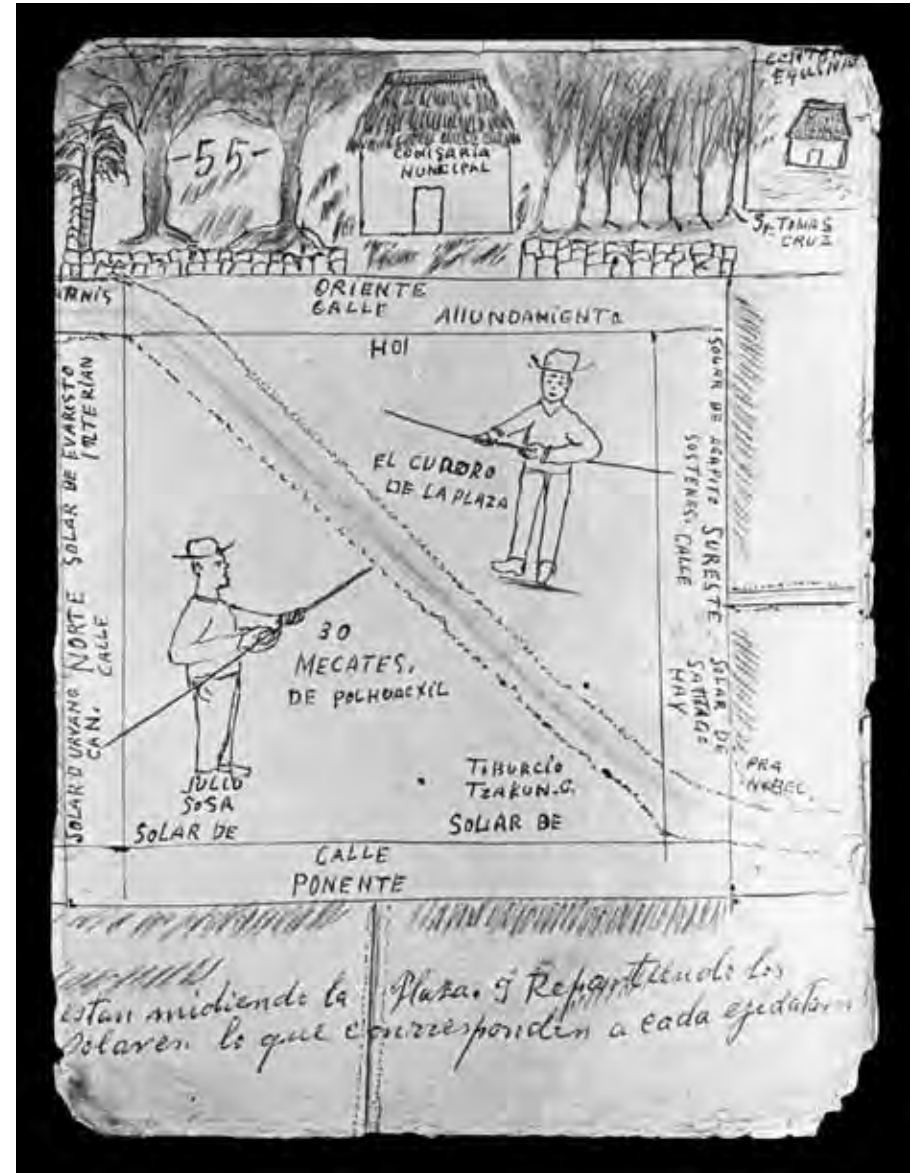 -55-
COMISARIA
MUNICIPAL
CENTRO
EQUINIO
Sr. TOMAS
CRUZ
ORIENTE
CALLE
AHUNDAMIENTO
HOI
SOLAR DE EVARISTO
INTERIAN
NORTE
CALLE
SOLAR DURVANO
CAN.
EL CUADRO
DE LA PLAZA
SOLAR DE AGAPITO
SOSTENES. CALLE
SURESTE - SOLAR DE
SANTIAGO
MAY
30
MECATES.
DE POLHUACXIL
JULIO
SOSA
SOLAR DE
TIBURCIO
TZAKUN.C.
SOLAR DE
PRA
NOBEC.
CALLE
PONENTE
estan midiendo la Plaza. y Repartiendo los
Solares. lo que corresponden a cada ejidatari